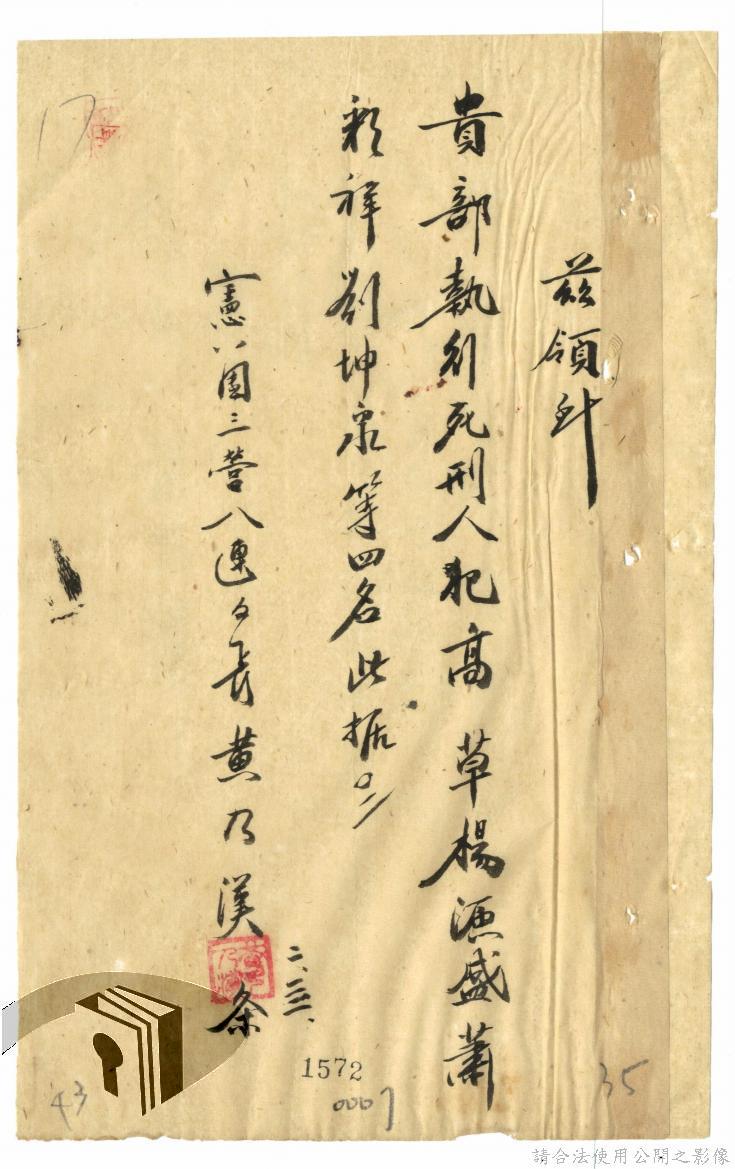 茲領到
貴部執行死刑人犯高草楊源盛蕭
彩祥劉坤泉等四名此据
憲八團三營八連々長黃乃漢
条
17
1572
0007
35
43
請合法使用公開之影像